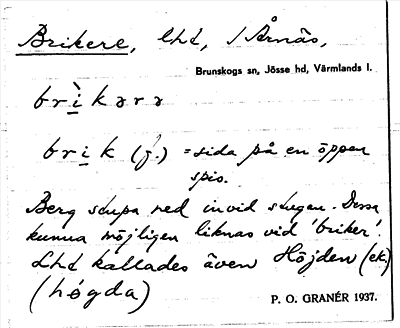 Brikere, lht, i Årnäs,
Brunskogs sn, Jösse hd, Värmlands l.
brì̱kərə
bri̱k (f.) = sida på en öppen
spis.
Berg stupa ned invid stugan. Dessa
kunna möjligen liknas vid 'briker'.
Lht kallades även Höjden (ek)
(høgda)
P. O. GRANÉR 1937.